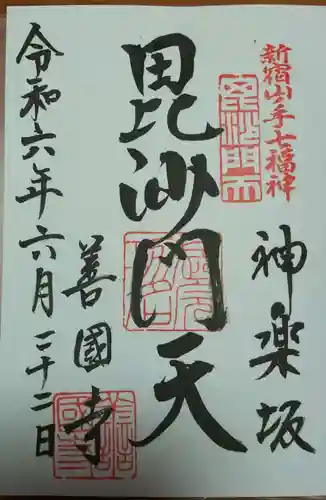 新宿山ノ手七福神
神楽坂
毘沙門天
毘沙門天
善國寺
令和六年六月二十二日